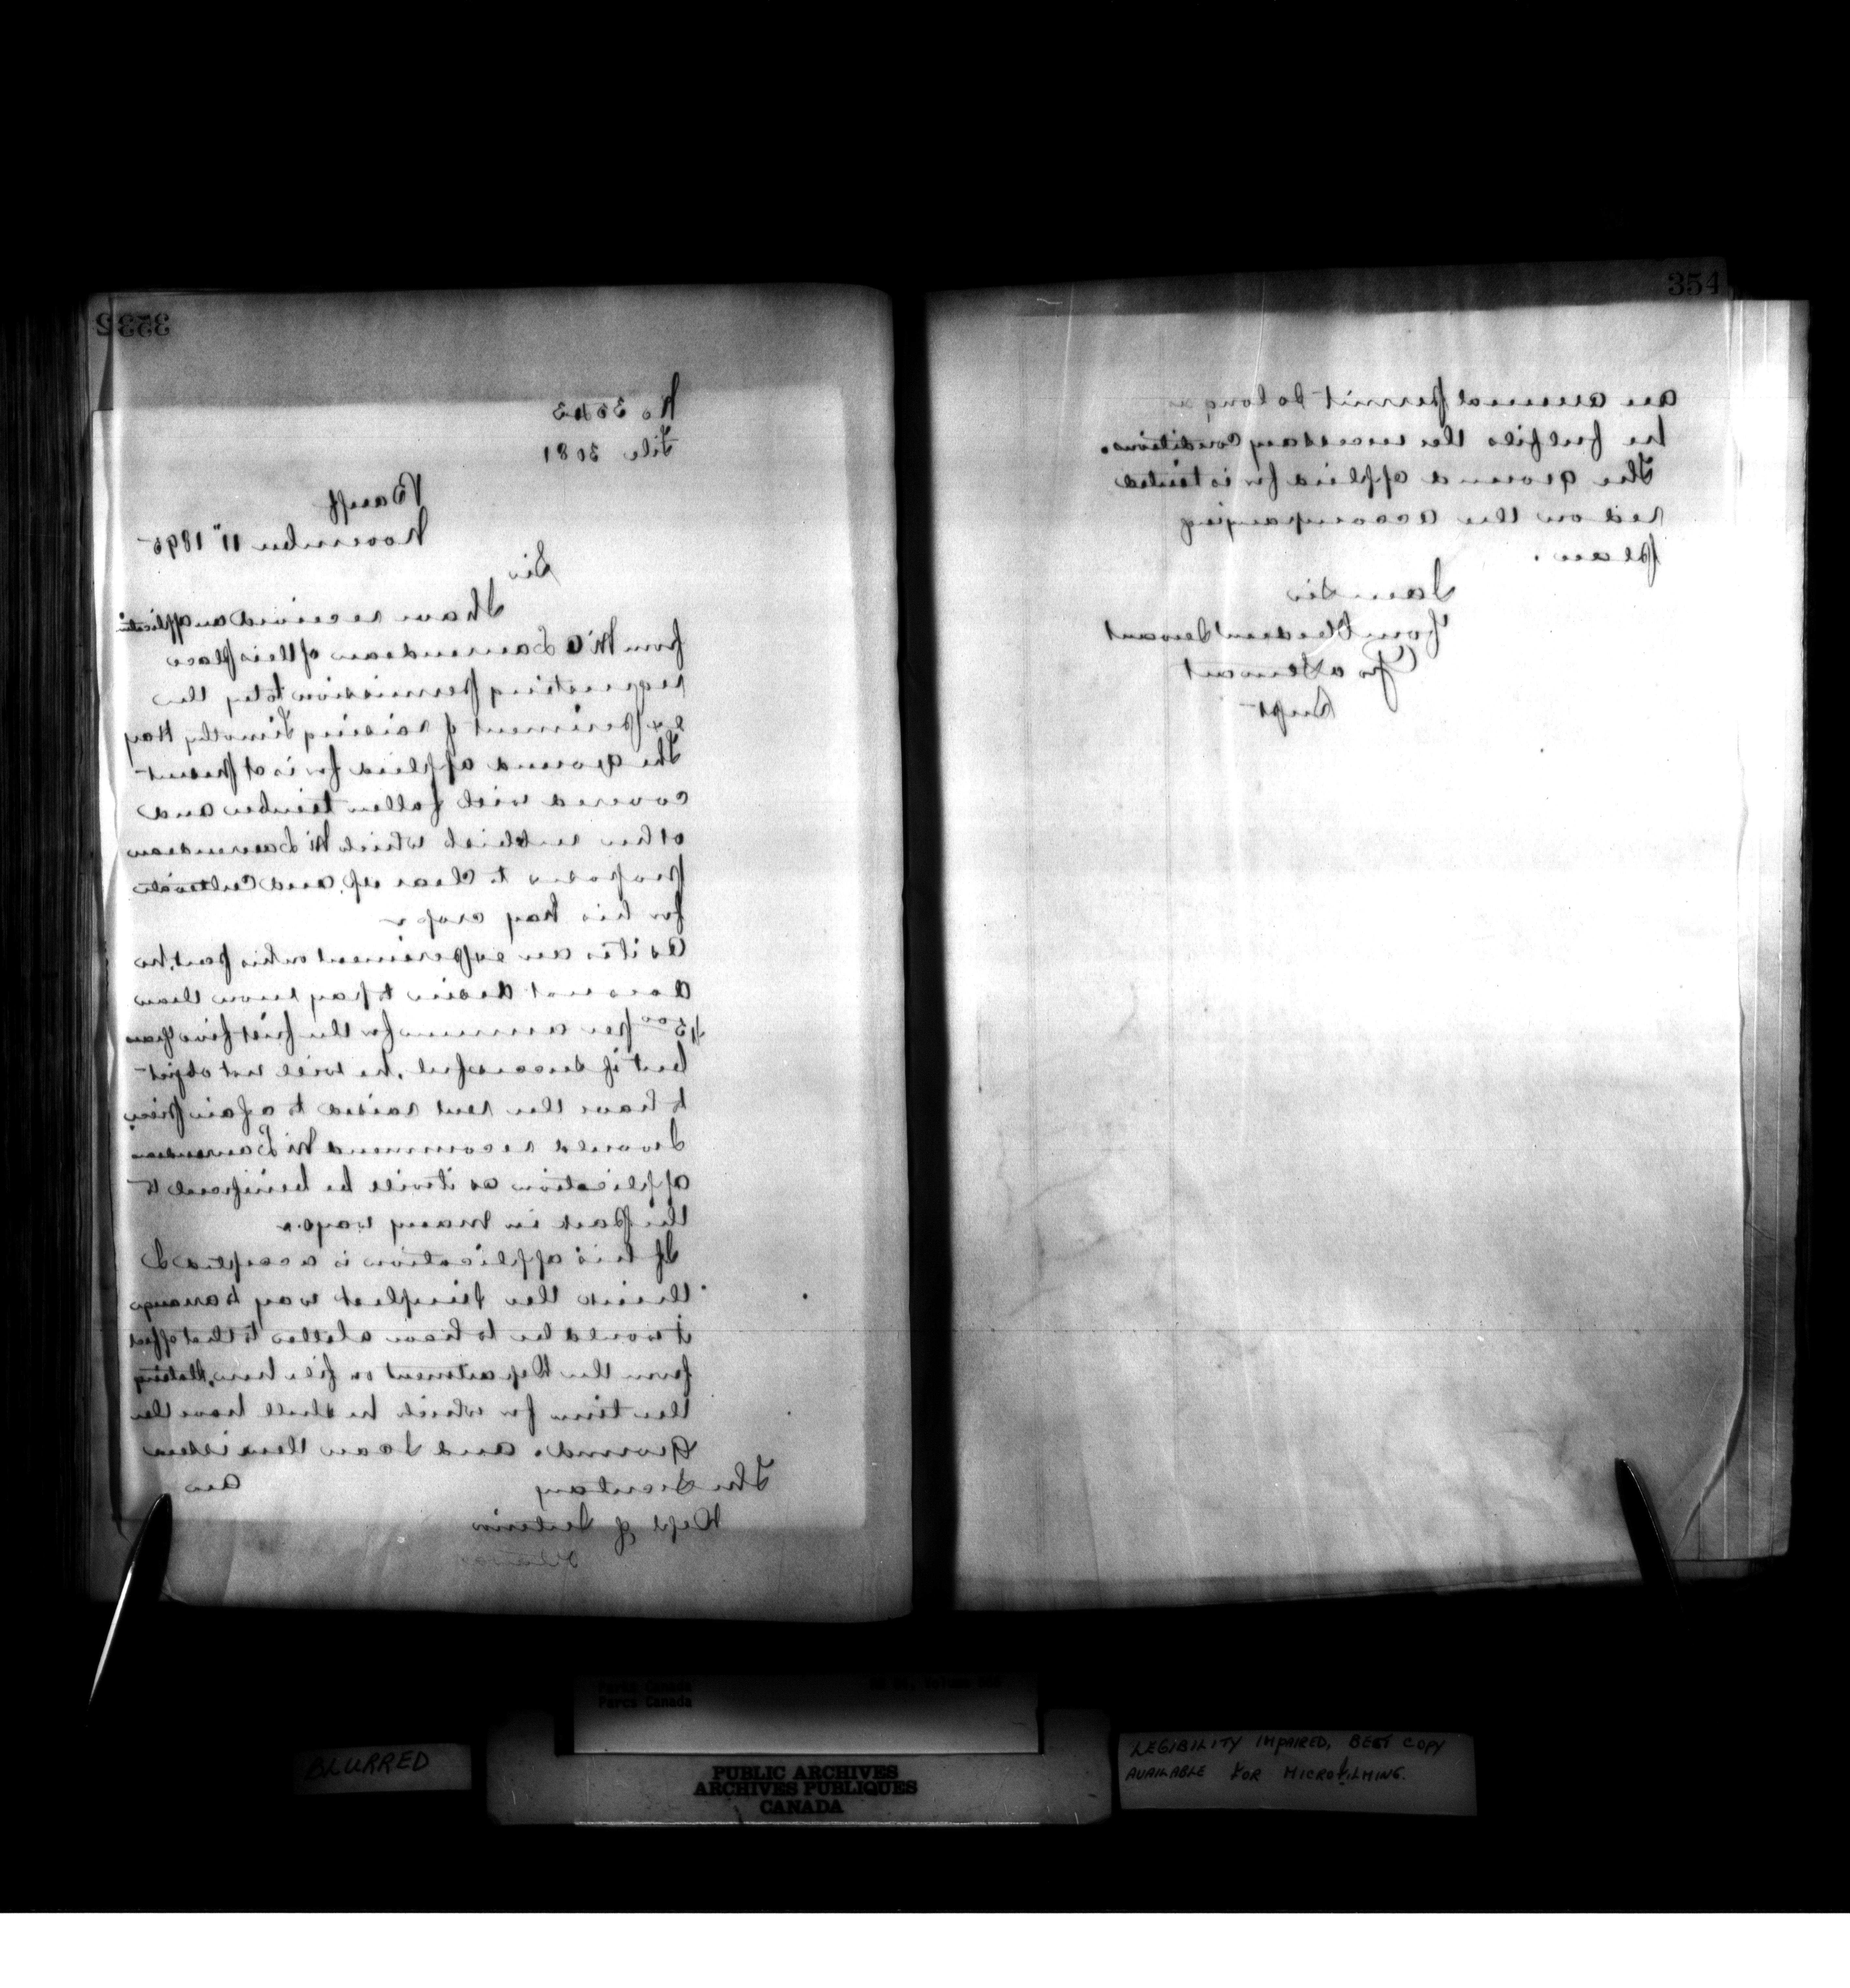 353
No 35
File 3081
Banff
November 11" 1895
Sir
I have received an application
from Mr Laurendeau of this place
requesting permission to try the
experiment of raising Timothy Hay
The ground applied for is at present
covered with fallen timber and
other rubbish which Mr Laurendeau
proposes to clear up and Cultivate
for his hay crop
As it is an experiment on his part, he
does not desire to pay more than
$5.00 per annum for the first five years
but if successful, he will not object
to have the rent raised to a fair price
I would recommend Mr Laurendeau
application as it will be benifical to
the Park in many ways.
If his application is accepted I
think the simplest way to arrange
it would be to have a letter to that effect
from the Department on file here, stating
the time for which he shall have the
Ground. and I can then issue
an
The Secretary
Dept of Interior
Ottawa
354
an annual permit so long as
he fulfils the necessary conditions.
The ground applied for is tinted
red on the accompanying
plan.
I am Sir
Your Obedient Servant
Geo A Stewart
Supt
Parks Canada
Parcs Canada
BLURRED
PUBLIC ARCHIVES
ARCHIVES PUBLIQUES
CANADA
LEGIBILITY IMPAIRED, BEST COPY
AVAILABLE FOR MICROFILMING.